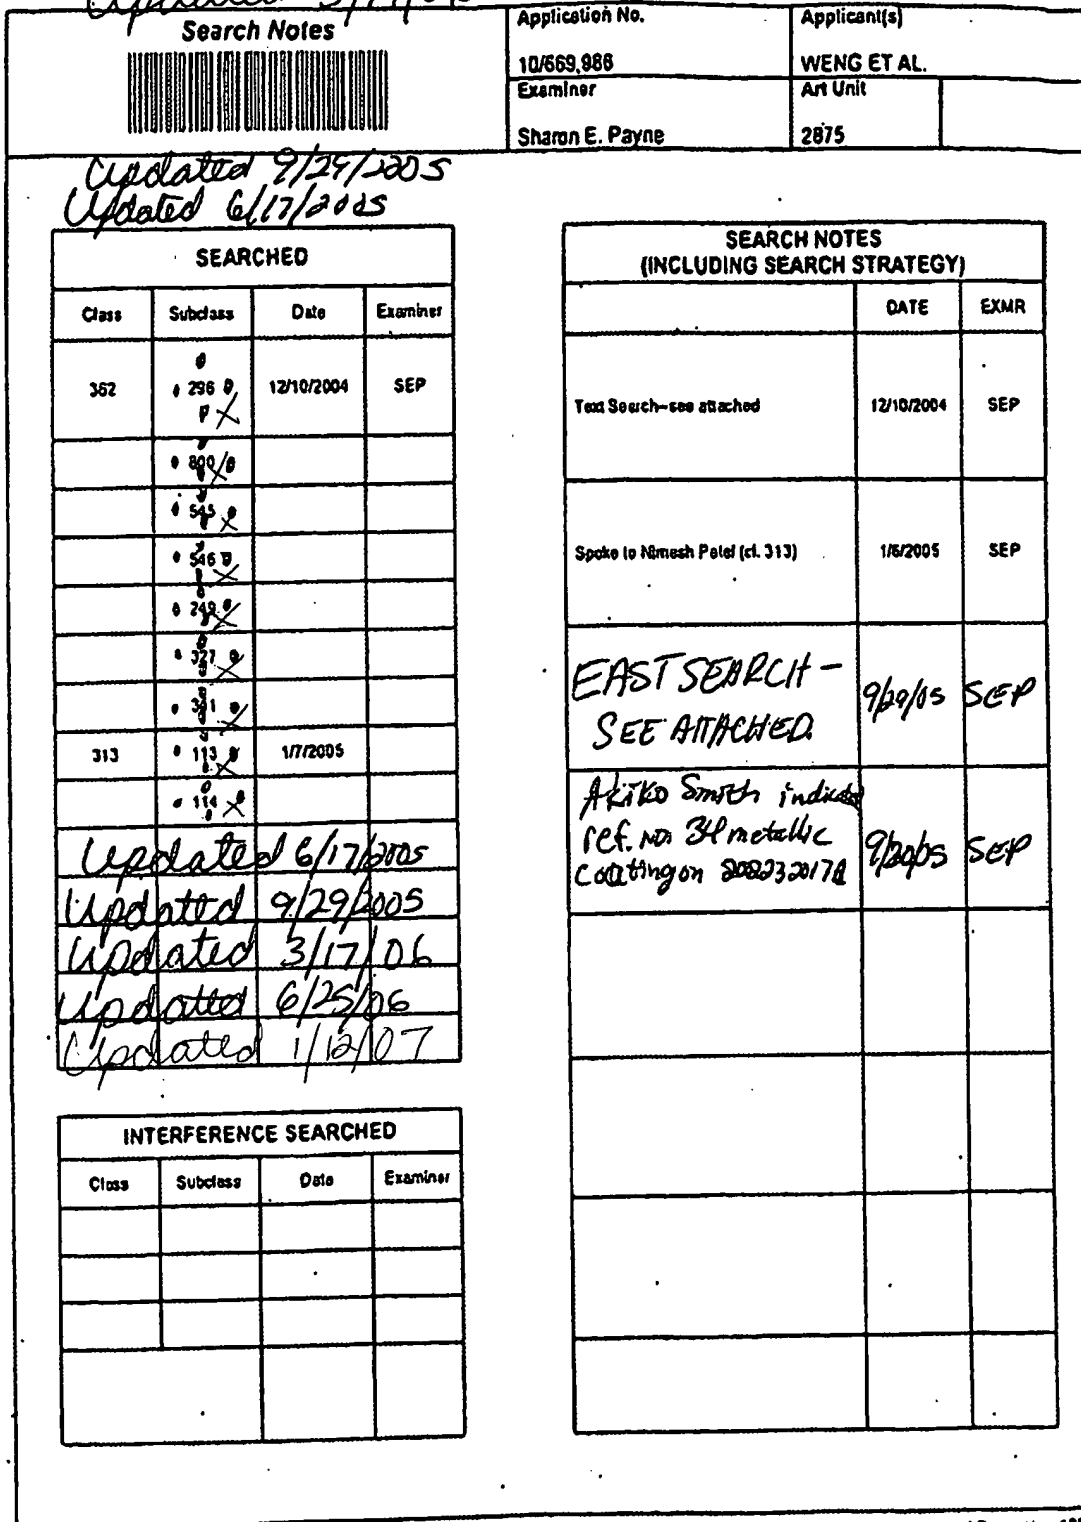 Updated 3/17/06
Search Notes
Application No.
10/669,986
Applicant(s)
WENG ET AL.
Examiner
Sharon E. Payne
Art Unit
2875
Updated 9/29/2005
Updated 6/17/2005
SEARCHED
Class Subclass Date Examiner
362 296 12/10/2004 SEP
800
545
546
249
327
313 113 1/7/2005
114
Updated 6/17/2005
Updated 9/29/2005
Updated 3/17/06
Updated 6/25/06
Updated 1/12/07
INTERFERENCE SEARCHED
Class Subclass Date Examiner
SEARCH NOTES
(INCLUDING SEARCH STRATEGY)
DATE EXMR
Text Search-see attached 12/10/2004 SEP
Spoke to Nimesh Patel (cl. 313) 1/6/2005 SEP
EAST SEARCH - 9/29/05 SEP
SEE ATTACHED.
Akiko Smith indicated
ref. no. 34 metallic 9/20/05 SEP
coating on